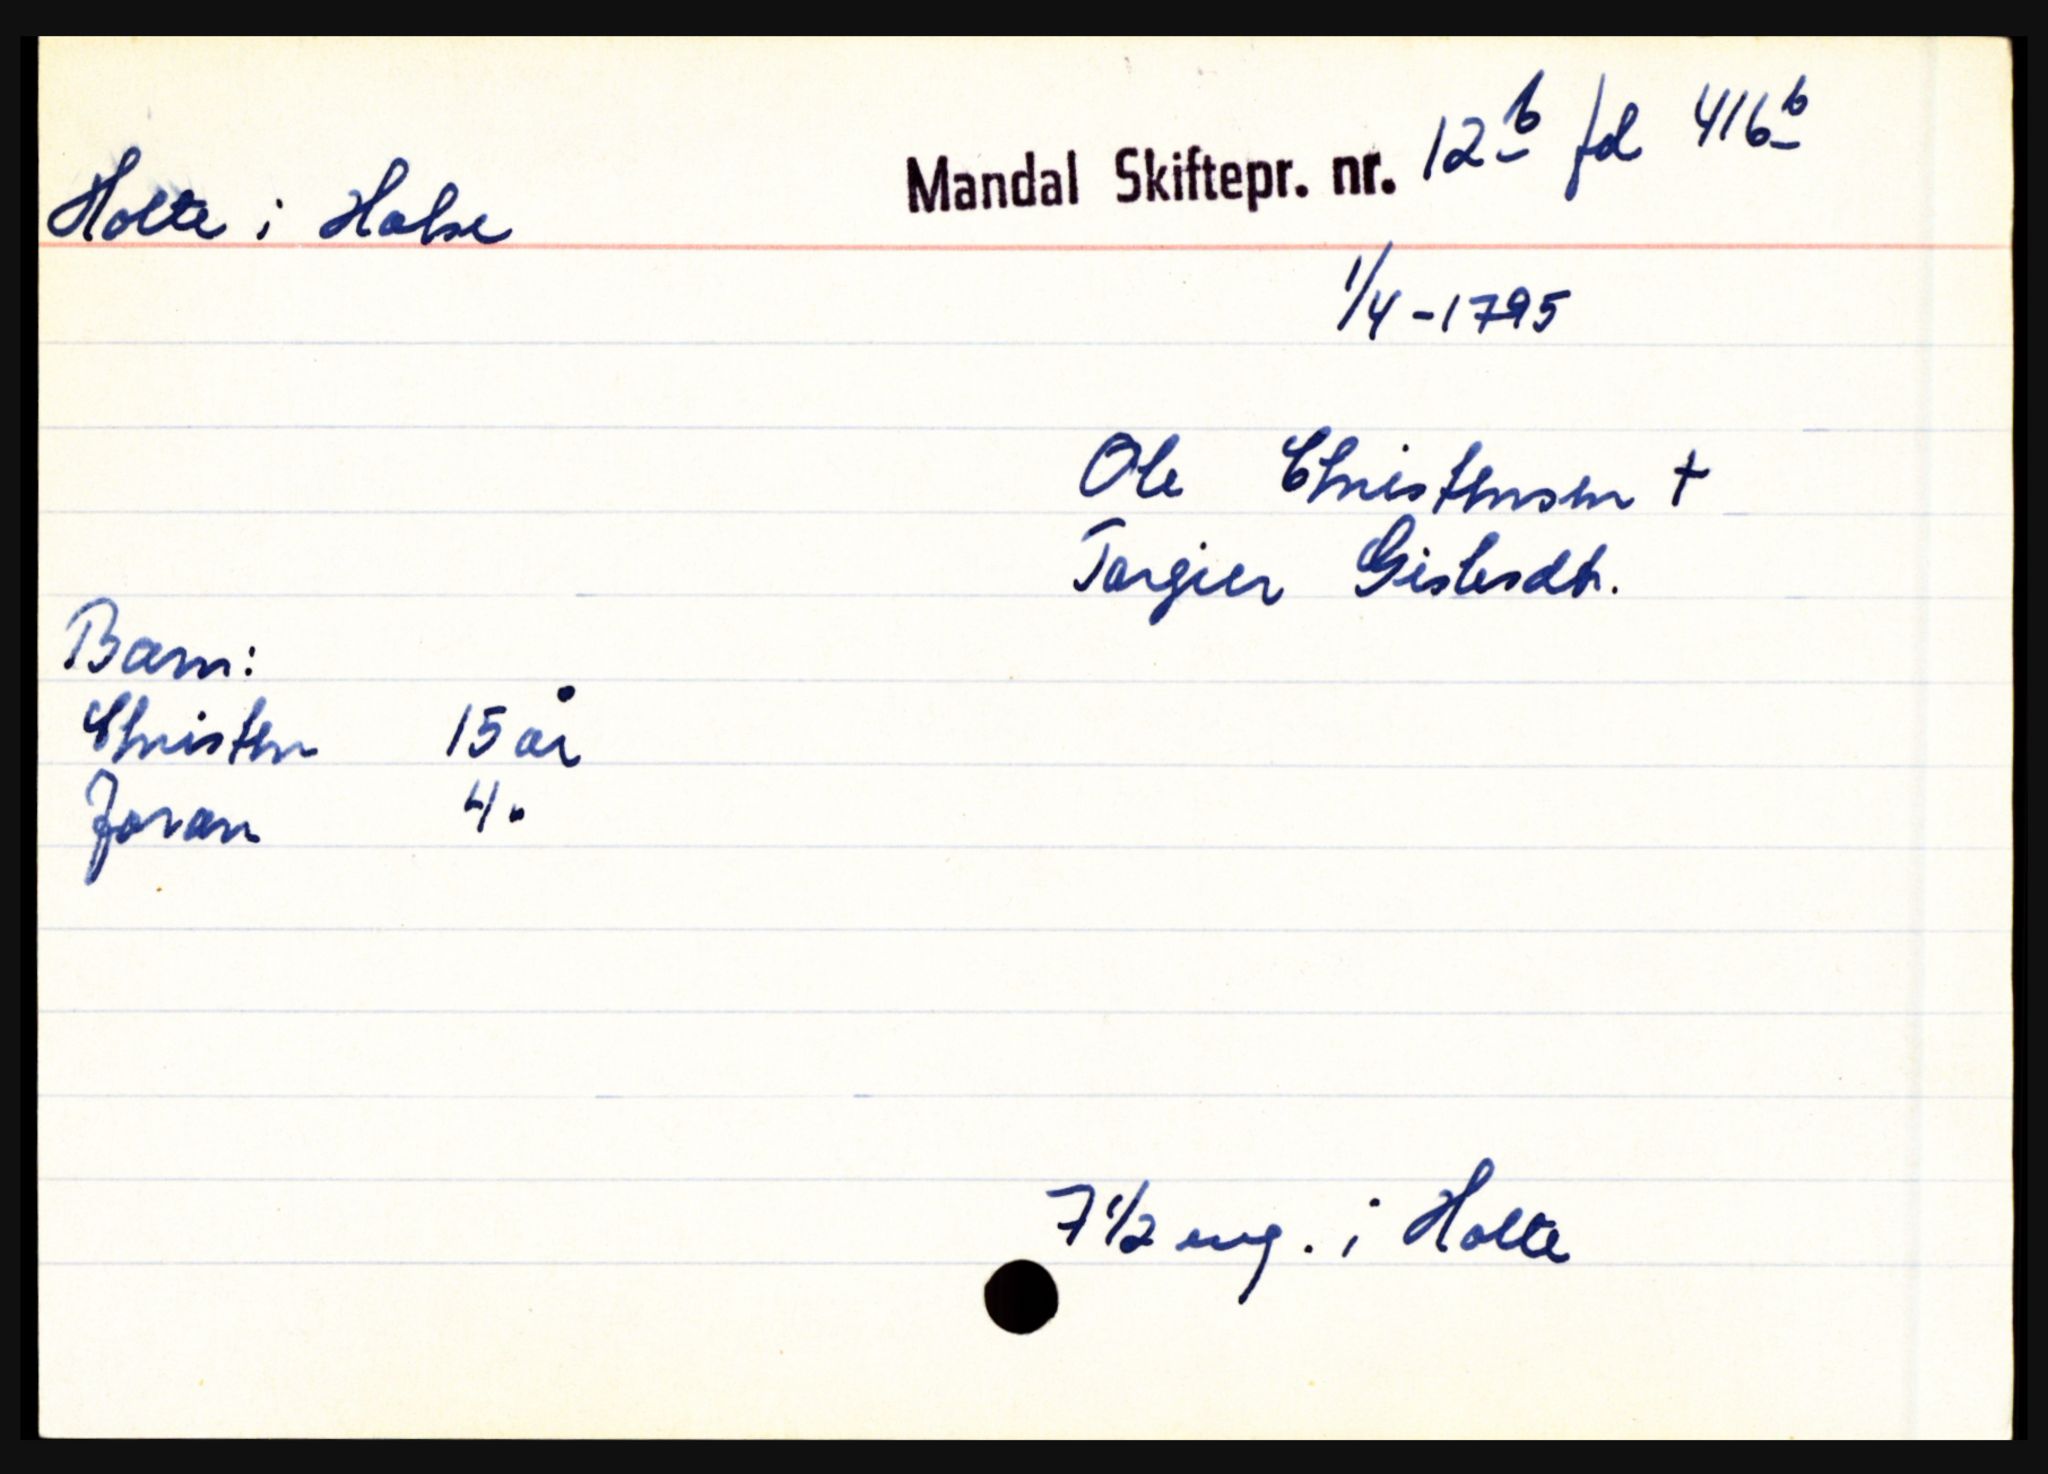 Holte i Halse
Mandal Skiftepr. nr. 12b fol 416b
1/4 - 1795
Ole Christensen +
Torgier Gislesdtr.
Barn:
Christen 15 år
Joran 4 "
7 1/2 eng. i Holte